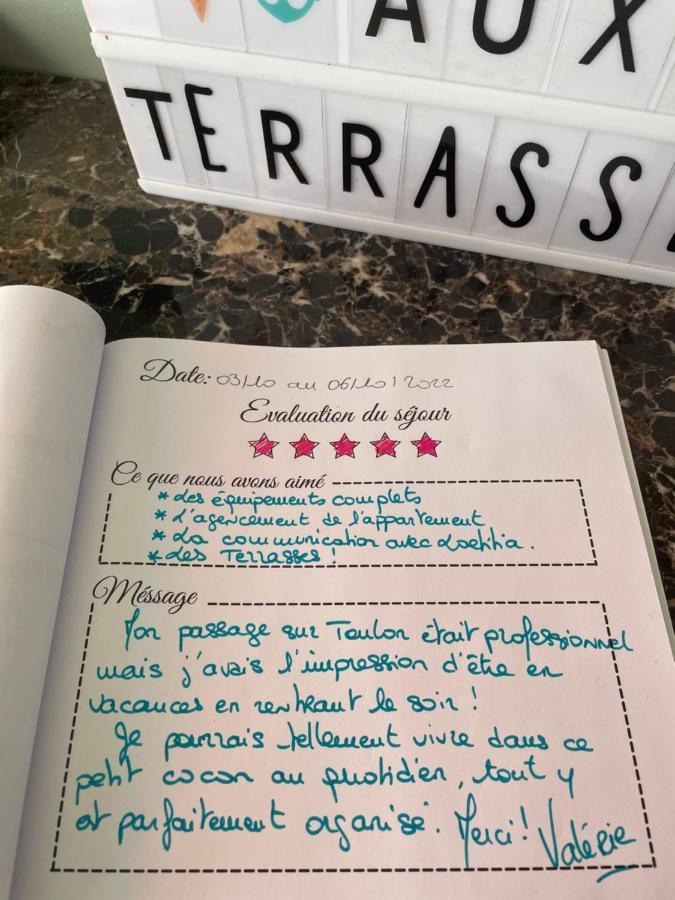 AUX
TERRASS
Date: 03/10 au 06/10/2022
Evaluation du séjour
Ce que nous avons aimé
* Les équipements complets
* L'agencement de l'appartement
* La communication avec Laetitia.
* Les Terrasses!
Méssage
Mon passage sur Toulon était professionnel
mais j'avais l'impression d'être en
vacances en rentrant le soir!
Je pourrais tellement vivre dans ce
petit cocon au quotidien, tout y
est parfaitement organisé. Merci! Valérie